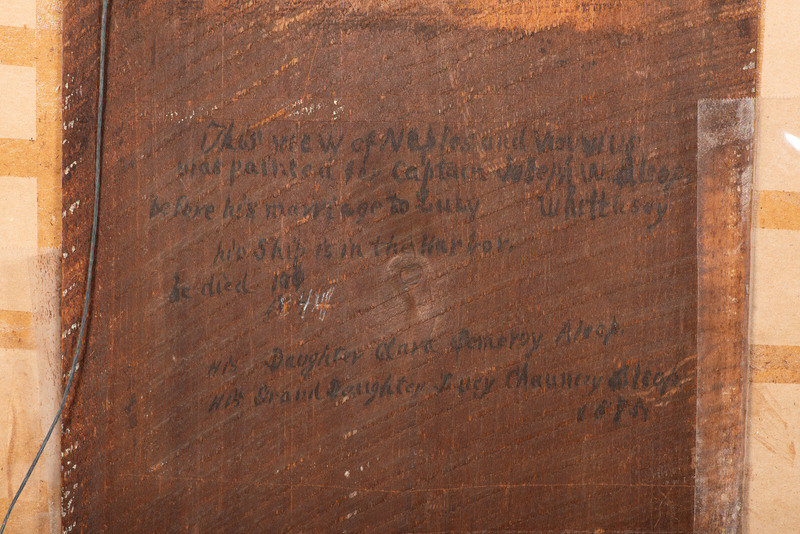 This view of Naples and
was painted for Captain Joseph W. Alsop
before his marriage to Lucy Whittlesey
his Ship is in the Harbor.
he died
His Daughter Clara Pomeroy Alsop.
His Grand Daughter Lucy Chauncy Alsop